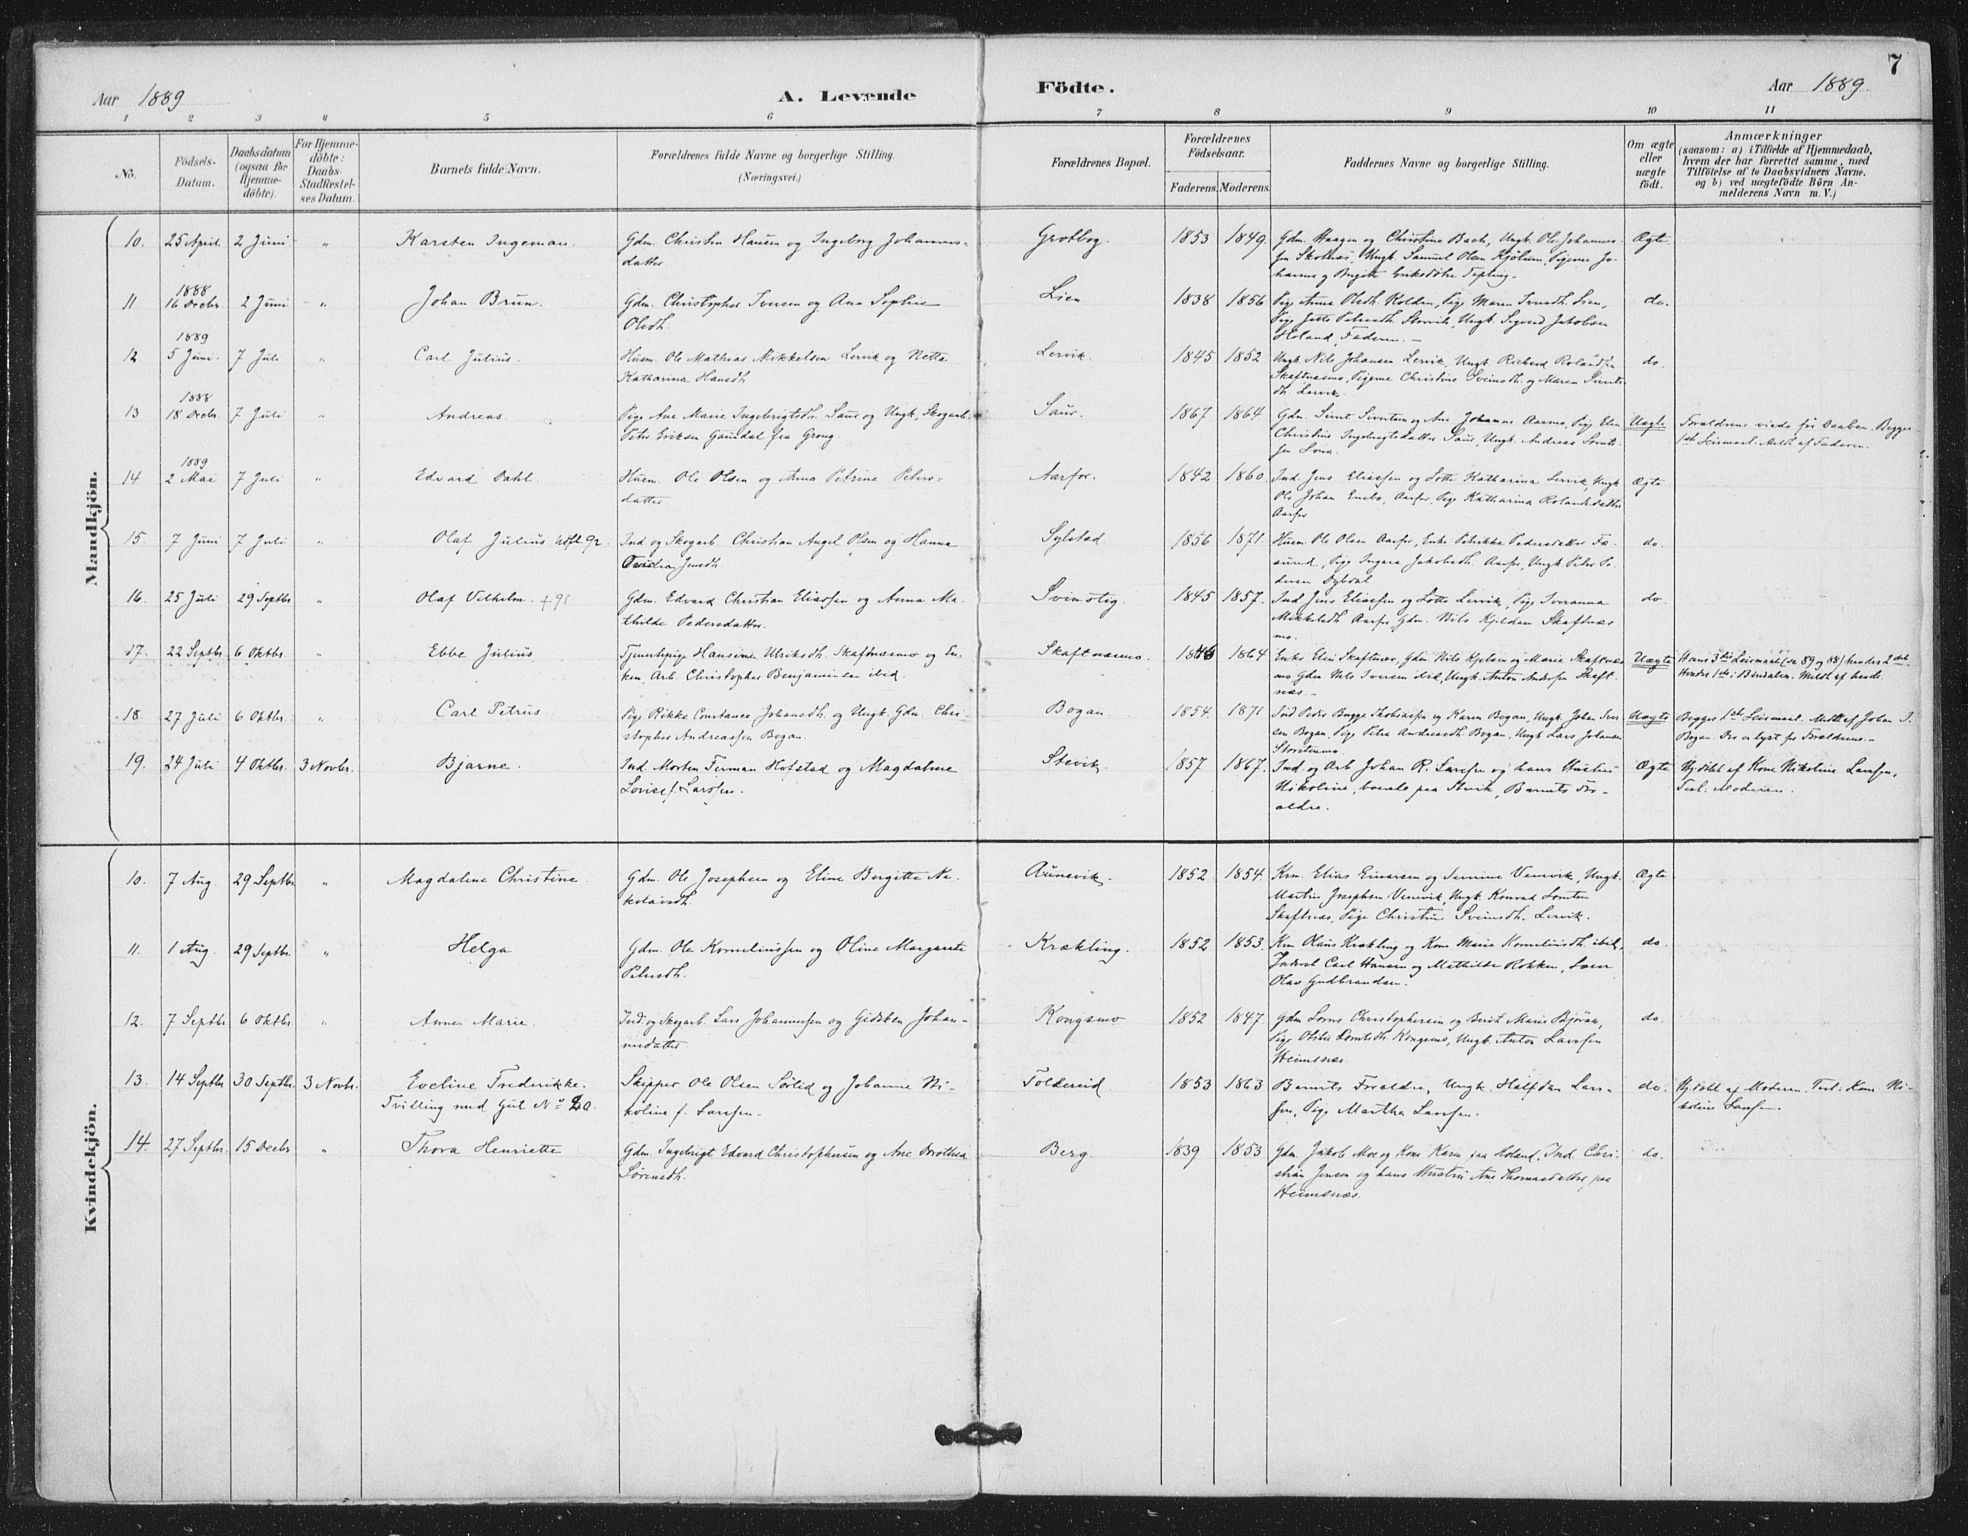 7
Aar 1889 A. Levende Födte. Aar 1889
1 2 3 4 5 6 7 8 9 10 11
No.
Födsels-
Datum.
Daabsdatum
(ogsaa for
Hjemme-
döbte).
For Hjemme-
döbte:
Daabs-
Stadfæstel-
ses Datum.
Barnets fulde Navn.
Forældrenes fulde Navne og borgerlige Stilling.
(Næringsvei.)
Forældrenes Bopæl.
Forældrenes
Födselsaar.
Faderens. Moderens.
Faddernes Navne og borgerlige Stilling.
Om ægte
eller
uægte
födt.
Anmærkninger
(saasom: a) i Tilfælde af Hjemmedaab,
hvem der har forrettet samme, med
Tilföielse af to Daabsvidners Navne,
og b) ved uægtefödte Börn An-
melderens Navn m. V.)
Mandkjön.
10. 25 April 2 Juni " Karsten Ingeman. Gdm. Christen Hansen og Ingeborg Johannes-
datter. Grotbog. 1853 1849. Gdm. Haagen og Christine Bach, Ungk. Ole Johannes-
sen Skotnes, Ungk. Samuel Olsen Kjölum, Pigerne Jo-
hanna og Birgitte Eriksdötre Tepling. Ægte.
1888
11 16 Decbr. 2 Juni " Johan Brun. Gdm. Christopher Iversen og Ana Sophie
Olsdh. Lien 1838 1856 Pige Anna Olsdh. Kolden, Pige Maren Iversdh. Lien,
Pige Jette Petersdh. Storvik, Ungk. Sigvard Jakobsen
Höland, Faderen. — do.
1889
12. 5 Juni 7 Juli " Carl Julius. Husm. Ole Mathias Mikkelsen Lervik og Netta
Katharina Hansdh. Lervik. 1845 1852 Ungk. Nils Johansen Lervik, Ungk. Richard Rolandsen
Skaftnæsmo, Pigerne Christine Sveinsdh. og Maren Siverts-
dh. Lervik. do.
1888
13 18 Decbr. 7 Juli " Andreas. Pige Ane Marie Ingebrigtsdh. Saur og Ungk. Skogarb.
Peter Eriksen Gaundal fra Grong. Saur. 1867 1864 Gdm. Sivert Sivertsen og Ane Johanna Aarmo, Pige Elen
Christine Ingebrigtsdatter Saur, Ungk. Andreas
Lona. Uægte Forældrene viede för Daaben. Begges
1ste Leiermaal. Meldt af Faderen.
1889
14 2 Mai 7 Juli " Edvard Dahl. Husm. Ole Olsen og Anna Petrine Peters-
datter. Aarfor. 1842 1860. Ind. Jens Eliassen og Lotte Katharina Lervik, Ungk.
Ole Johan Aarfor, Pige Katharina Rolandsdatter
Aarfor Ægte
15. 7 Juni 7 Juli " Olaf Julius Ind. og Skogarb. Christian Angel Olsen og Hanna
Jensdh Sylstad 1856 1871 Husm. Ole Olsen Aarfor, Enke Petrikka Pedersdatter
Pige Ingara Jakobsdh. Aarfor, Ungk. Peter Pe-
dersen do.
16. 25 Juli 29 Septbr " Olaf Vilhelm. +91 Gdm. Edvard Christian Eliassen og Anna Ma-
thilde Pedersdatter. Svinstig. 1845 1857. Ind. Jens Eliassen og Lotte Lervik, Pige Iveranna
Mikkelsdh. Aarfor, Gdm. Nils Kjeldsen Skaftnæs-
mo. do.
17. 22 Septbr 6 Oktbr. " Ebbe Julius Tjenestepige Hansine Ulriksdh. Skaftnæsmo og En-
kem. Arb. Christopher Benjaminsen ibid. Skaftnæsmo. 1846 1864 Enke Elen Skaftnæs, Gdm. Nils Kjelsen og Marie Skaftnæs-
mo, Gdm. Nils Iversen ibid, Ungk. Anton Andersen Skaft-
næs. — Uægte Hans 3die Leiermaal (se 89 og 88) hendes 2det
Hendes 1ste i Bindalen. Meldt af hende.
18. 27 Juli 6 Oktbr. " Carl Petrus Pige Rikke Constance Johansdh. og Ungk. Gdm. Chri-
stopher Andreassen Bogan. Bogan. 1854. 1871 Ind. Peder Bugge Thobiassen og Karen Bogan, Ungk. Johan Iver-
sen Bogan, Pige Petra Andreasdh. Bogan, Ungk. Lars Johansen
Storstenmo. Uægte Begges 1ste Leiermaal. Meldt af Johan I.
Bogan. Der er lyst for Forældrene.—
19. 24 Juli 4 Oktbr. 3 Novbr. Bjarne. Ind. Morten Ferman Hofstad og Magdalene
Lovise f. Larssen. Stevik. 1857 1867. Ind. og Arb. Johan R. Larssen og hans Hustru
Nikoline, boende paa Stevik, Barnets For-
ældre. Ægte Hj.döbt af Kone Nikoline Larssen,
Test. Moderen.
Kvindekjön.
10. 7 Aug. 29 Septbr " Magdaline Christine. Gdm. Ole Josephsen og Eline Bergitte Ni-
kolaisdh. Aunevik. 1852 1854. Krm. Elias Einersen og Venevik, Ungk.
Martin Josephsen Venevik, Ungk. Konrad
Skaftnæs, Pige Christine Sveinsdh. Lervik. Ægte
11. 1 Aug. 29 Septbr. " Helga Gdm. Ole Korneliussen og Oline Margrete
Petersdh. Krækling. 1852 1853. Krm. Olaus Krækling og Kone Maria Korneliusdh. ibid,
Inderst Carl Hansen og Mathilde Rokken,
Olav Gudbrandsen. do.
12. 7 Septbr. 6 Oktbr. " Anne Marie. Ind. og Skogarb. Lars Johannesen og Gidsken Johan-
nesdatter. Kongsmo 1852 1847. Gdm. Lorns Christophersen og Berit Marie Björaa,
Pige Kongsmo, Ungk. Anton Larssen
Heimsnæs. do.
13. 14 Septbr 30 Septbr 3 Novbr. Eveline Frederikke.
Tvilling med Gut No 20. Skipper Ole Olsen Sörlid og Johanne Ni-
koline f. Larssen. Foldereid 1853 1863 Barnets Forældre, Ungk. Halfdan Lars-
sen, Pige Martha Larssen. do. Hj.döbt af Moderen. Test. Kone Ni-
koline Larssen.
14. 27 Septbr. 15 Decbr " Thora Henriette Gdm. Ingebrigt Edvard Christophersen og Ane Dorothea
Sörensdh. Berg. 1839 1853 Gdm. Jakob Moe og Kone Karen paa Höland, Ind. Chri-
stian Jensen og hans Hustru Ane Thomasdatter, paa
Heimsnæs. do.